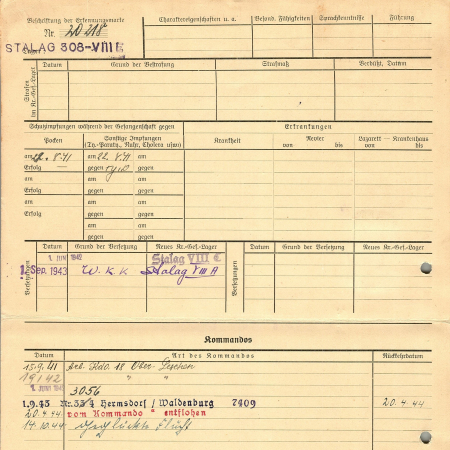 Beschriftung der Erkennungsmarke
Nr. 20 218
Lager:
STALAG 308-VIII E
Charaktereigenschaften u. a.
Besond. Fähigkeiten
Sprachkenntnisse
Führung
Strafen im Kr.-Gef.-Lager
Datum
Grund der Bestrafung
Strafmaß
Verbüßt, Datum
Schutzimpfungen während der Gefangenschaft gegen
Erkrankungen
Pocken
Sonstige Impfungen
(Ty.-Paraty., Ruhr, Cholera usw.)
Krankheit
Revier
von bis
Lazarett - Krankenhaus
von bis
am 12. 8. 41 am 22. 8. 41 am
Erfolg — gegen gegen
am am am
Erfolg gegen gegen
am am am
Erfolg gegen gegen
am am
gegen gegen
Versetzungen
Datum
Grund der Versetzung
Neues Kr.-Gef.-Lager
Versetzungen
Datum
Grund der Versetzung
Neues Kr.-Gef.-Lager
1. JUNI 1942 Stalag VIII C
1. Sep. 1943 W. K. K Stalag VIII A
Kommandos
Datum
Art des Kommandos
Rückkehrdatum
15.9.41 Arb. Kdo. 18 Ober-
19 1 42 " "
1. JUNI 1942 3056
1.9.43 Nr. Hermsdorf / Waldenburg 7409 20.4.44
20.4.44 vom Kommando entflohen
14.10.44 Geglückte Flucht